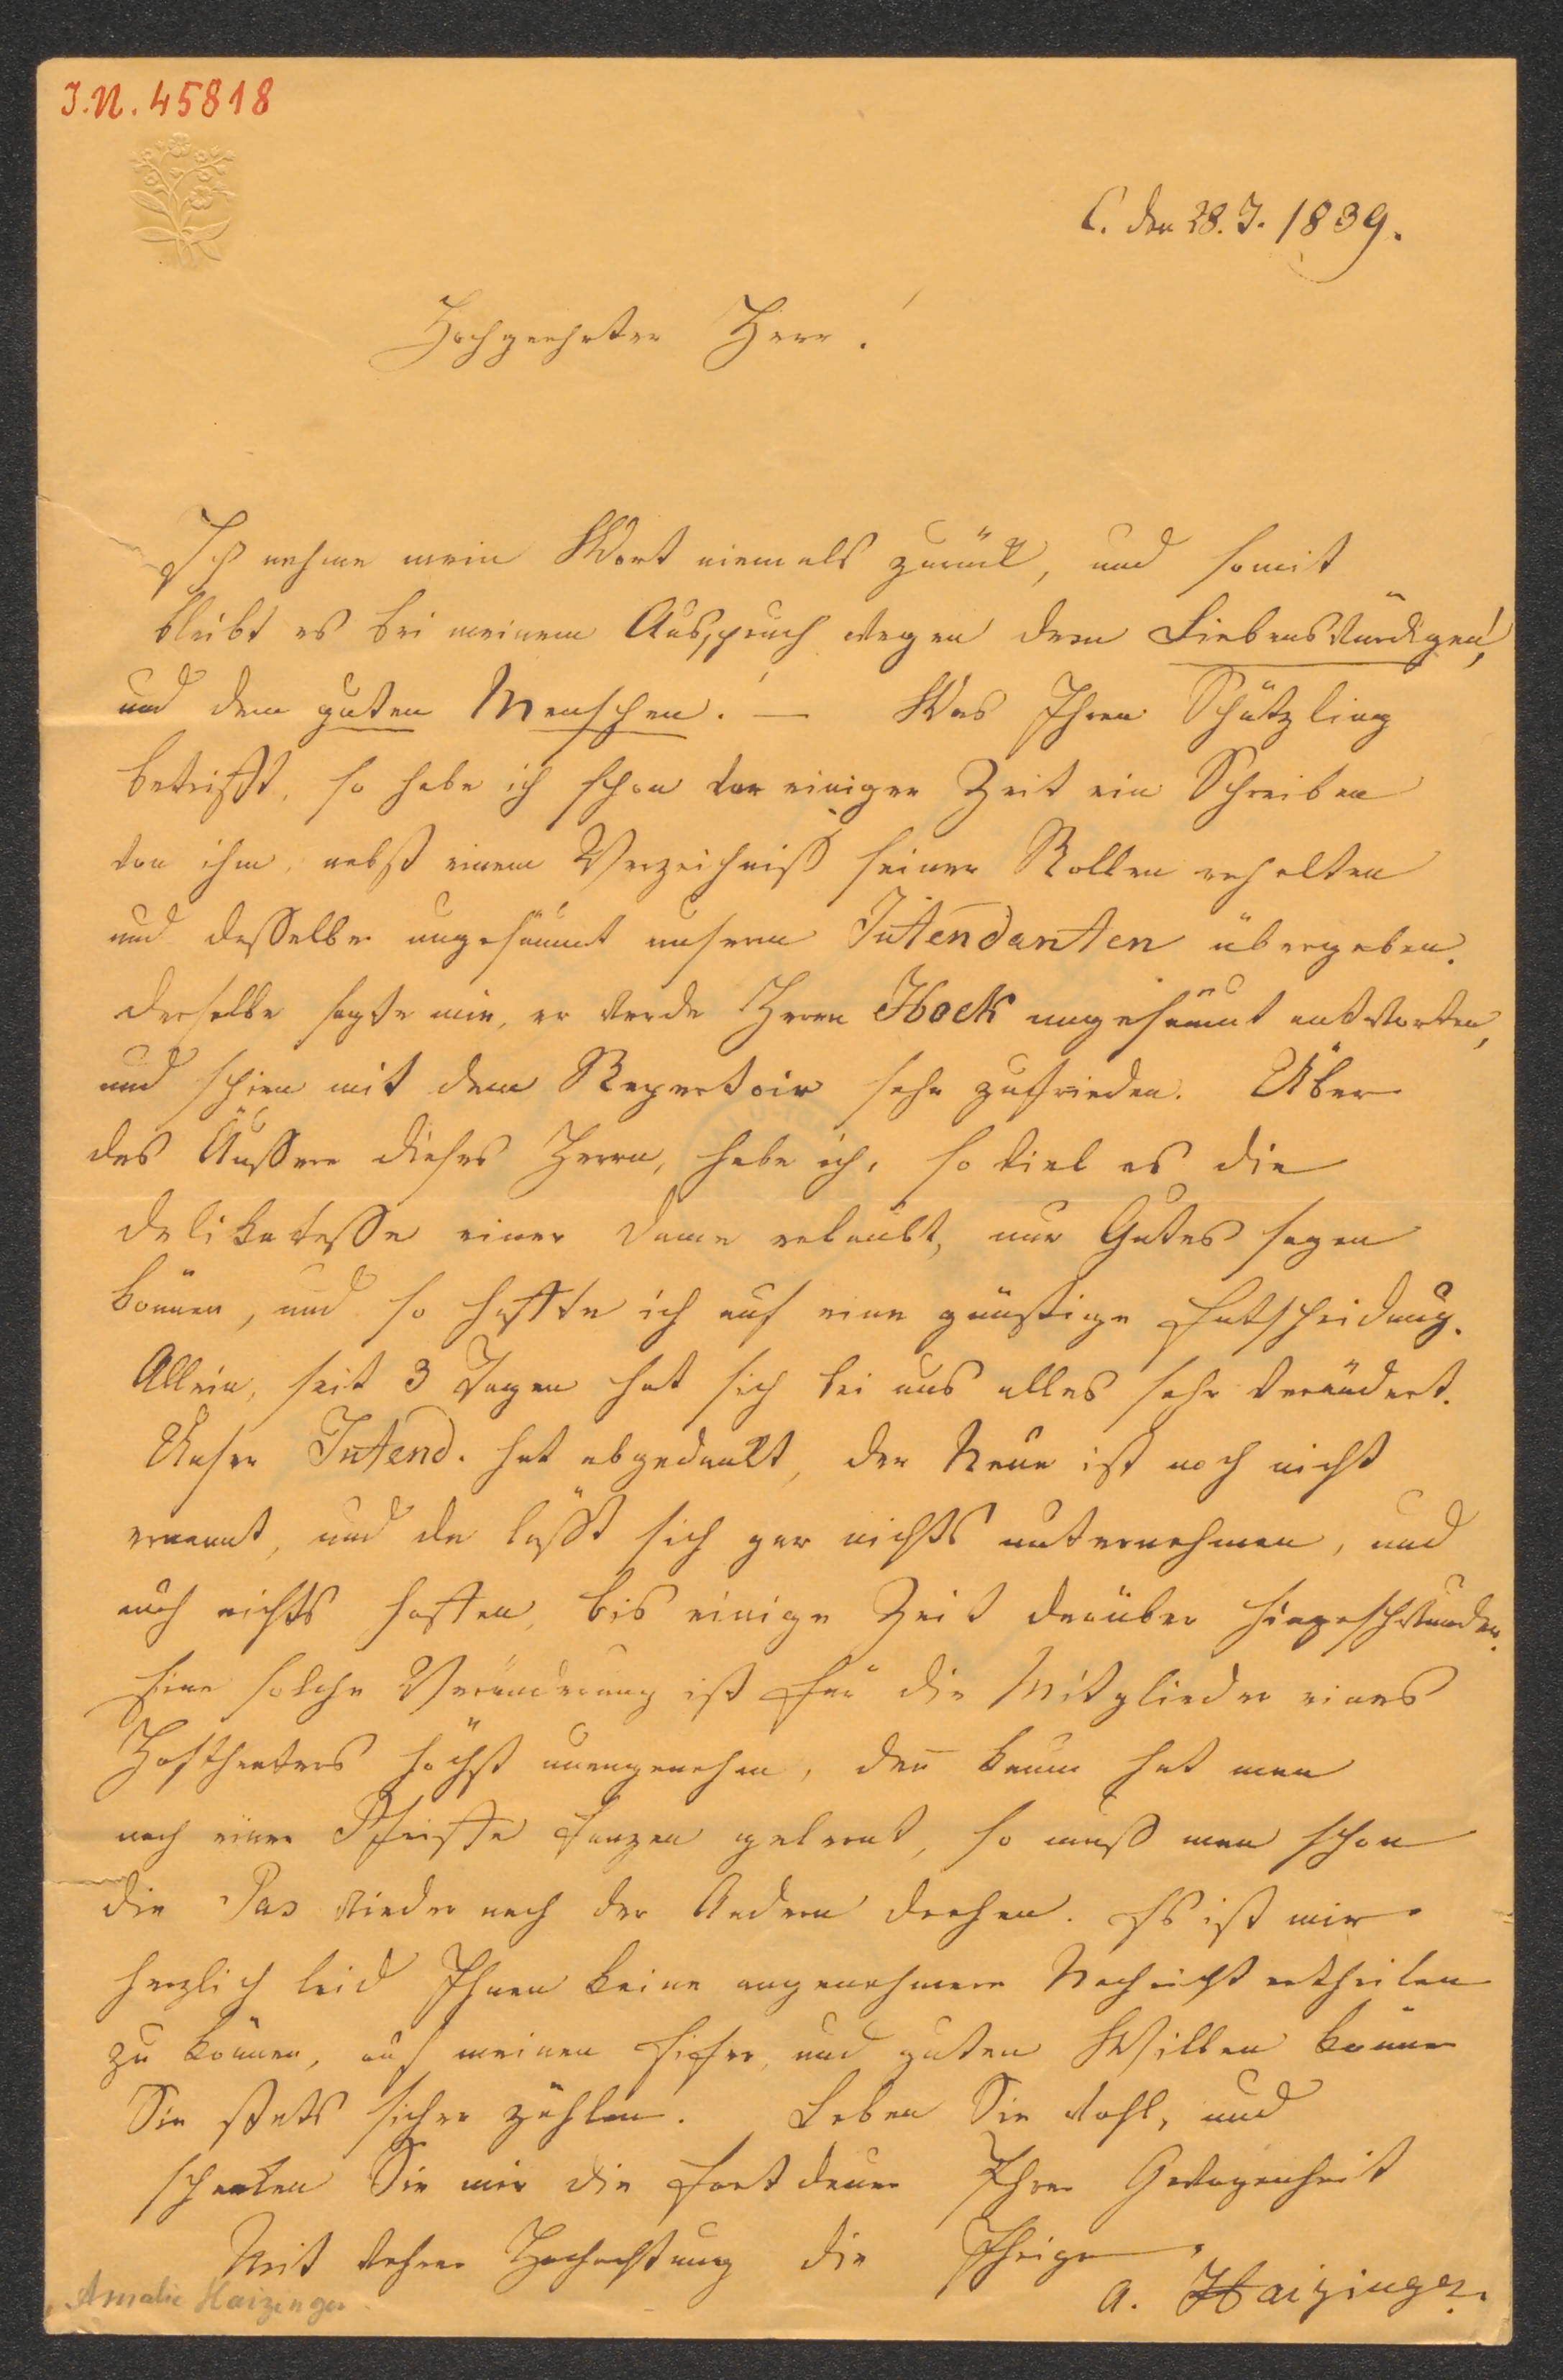 I.N. 45818
C. den 28. J. 1839.
Hochgeehrter Herr!
Ich nehme mein Wort niemals zurück, und somit
bleibt es bei meinem Ausspruch wegen dem Liebenswürdigen,
und dem guten Menschen! — Was Ihren Schützling
betrifft, so habe ich schon vor einiger Zeit ein Schreiben
von ihm, nebst einem Verzeichniß seiner Rollen erhalten
und desselbe ungesäumt unserm Intendanten übergeben.
derselbe sagte mir, er werde Herrn Hock ungesäumt antworten,
und schien mit dem Repertoir sehr zufrieden. Über
das Äussere dieses Herrn, habe ich, so viel es die
delikatesse einer Dame erlaubt, nur Gutes sagen
können, und so hoffte ich auf eine günstige Entscheidung.
Allein, seit 3 Tagen hat sich bei uns alles sehr verändert.
Unser Intend. hat abgedankt, der Neue ist noch nicht
ernannt, und da lässt sich gar nichts unternehmen, und
auch nichts hoffen, bis einige Zeit darüber hingeschwunden.
Eine solche Veränderung ist für die Mitglieder eines
Hoftheaters höchst unangenehm, deñ kaum hat man
nach einer Pfeiffe tanzen gelernt, so muß man schon
die Pas wieder nach der Andern drehen. Es ist mir
herzlich leid Ihnen keine angenehmere Nachricht ertheilen
zu können, auf meinen Eifer, und guten Willen können
Sie stets sicher zählen. Leben Sie wohl, und
schenken Sie mir die Fortdauer Ihrer Gewogenheit
Mit wahrer Hochachtung die Ihrige
A. Haizinger.
Amalie Haizinger